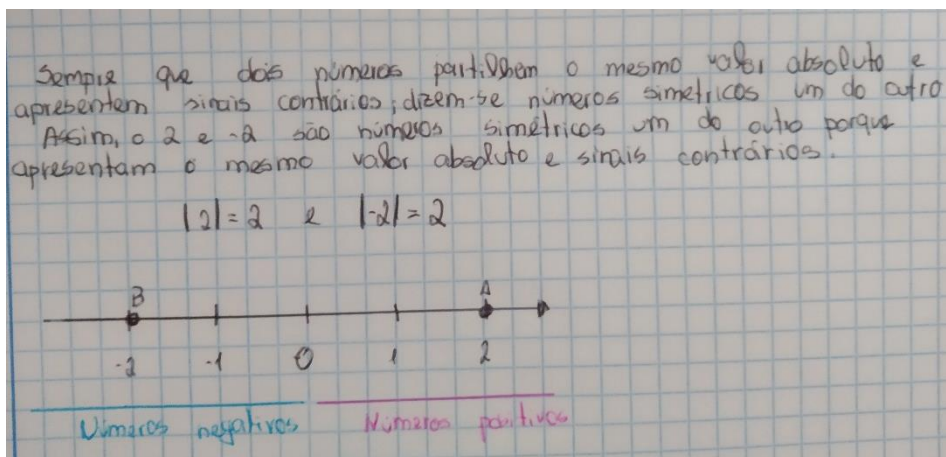 Sempre que dois números partilhem o mesmo valor absoluto e
apresentem sinais contrários, dizem-se números simetricos um do outro
Assim, o 2 e -2 são números simétricos um do outro porque
apresentam o mesmo valor absoluto e sinais contrários.
|2| = 2 e |-2| = 2
B A
-2 -1 0 1 2
Números negativos Números positivos